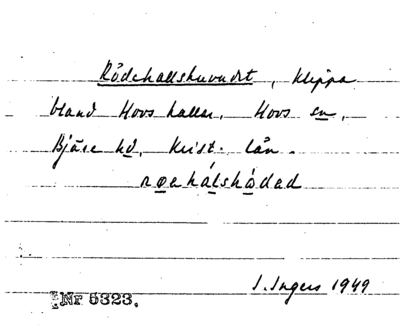 Rödehallshuvudet, klippa
bland Hovs hallar. Hovs sn,
Bjäre hd. Krist. län.
røehálshǫdad
I. Ingers 1949
Nr 5323.